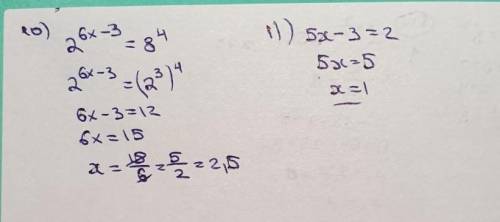 10) 2^{6x-3} = 8^4
2^{6x-3} = (2^3)^4
6x - 3 = 12
6x = 15
x = 15/6 = 5/2 = 2,5
11) 5x - 3 = 2
5x = 5
x = 1